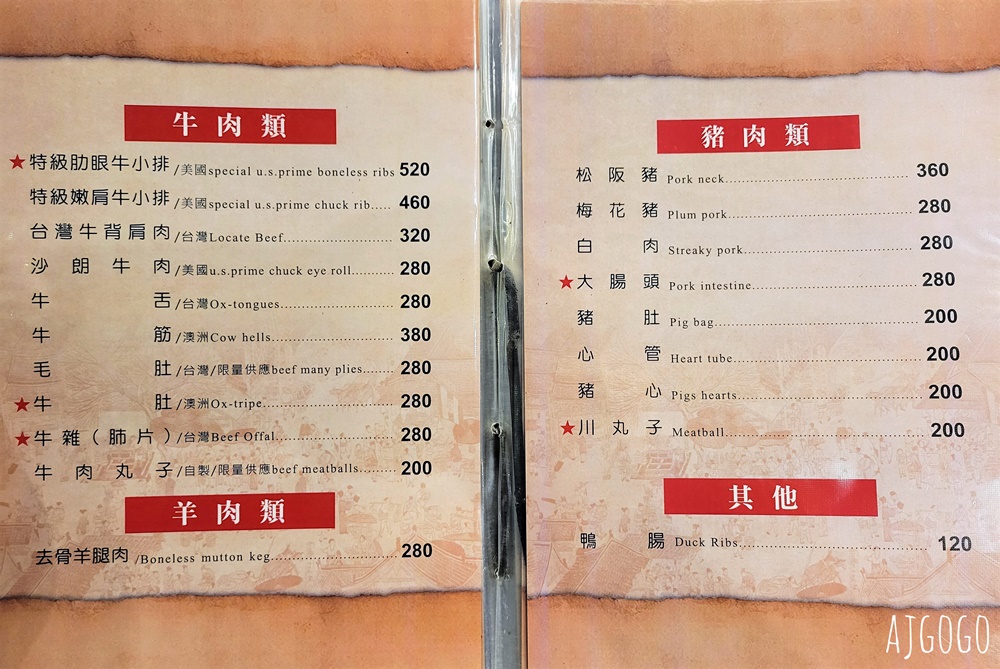 牛肉類
★特級肋眼牛小排/美國special u.s.prime boneless ribs 520
特級嫩肩牛小排/美國special u.s.prime chuck rib..... 460
台灣牛背肩肉/台灣Locate Beef........................ 320
沙朗牛肉/美國u.s.prime chuck eye roll.......... 280
牛舌/台灣Ox-tongues......................... 280
牛筋/澳洲Cow hells........................... 380
毛肚/台灣/限量供應beef many plies....... 280
★牛肚/澳洲Ox-tripe............................. 280
★牛雜(肺片)/台灣Beef Offal.......................... 280
牛肉丸子/自製/限量供應beef meatballs........ 200
羊肉類
去骨羊腿肉/Boneless mutton keg........................... 280
豬肉類
松阪豬 Pork neck............................................. 360
梅花豬 Plum pork............................................ 280
白肉 Streaky pork......................................... 280
★大腸頭 Pork intestine....................................... 280
豬肚 Pig bag................................................ 200
心管 Heart tube........................................... 200
豬心 Pigs hearts.......................................... 200
★川丸子 Meatball............................................. 200
其他
鴨腸 Duck Ribs............................................ 120
AJGOGO